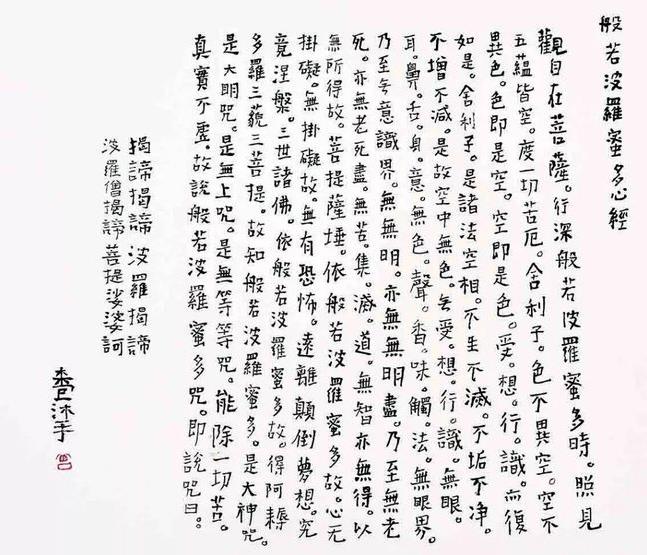 般若波羅蜜多心經
觀自在菩薩。行深般若波羅蜜多時。照見
五蘊皆空。度一切苦厄。舍利子。色不異空。空不
異色。色即是空。空即是色。受。想。行。識。亦復
如是。舍利子。是諸法空相。不生不滅。不垢不净。
不增不減。是故空中無色。无受。想。行。識。無眼。
耳。鼻。舌。身。意。無色。聲。香。味。觸。法。無眼界。
乃至无意識界。無無明。亦無無明盡。乃至無老
死。亦無老死盡。無苦。集。滅。道。無智亦無得。以
無所得故。菩提薩埵。依般若波羅蜜多故。心无
掛礙。無掛礙故。無有恐怖。遠離顛倒夢想。究
竟涅槃。三世諸佛。依般若波羅蜜多故。得阿耨
多羅三藐三菩提。故知般若波羅蜜多。是大神咒。
是大明咒。是無上咒。是無等等咒。能除一切苦。
真實不虛。故說般若波羅蜜多咒。即說咒曰。
揭諦揭諦 波羅揭諦
波羅僧揭諦 菩提娑婆訶
沐手